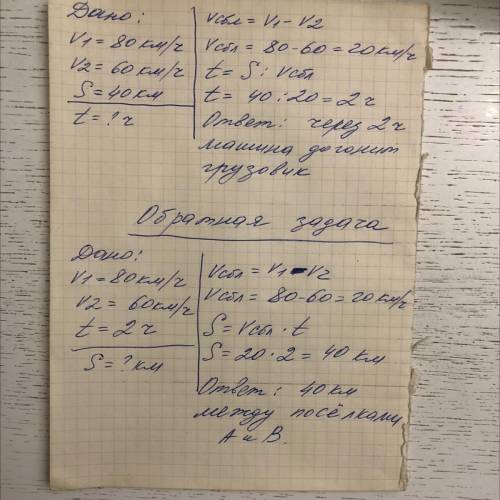 Дано:
V1 = 80 км/ч
V2 = 60 км/ч
S = 40 км
t = ? ч
Vсбл = V1 - V2
Vсбл = 80-60 = 20 км/ч
t = S : Vсбл
t = 40 : 20 = 2 ч
Ответ: через 2 ч
машина догонит
грузовик
Обратная задача
Дано:
V1 = 80 км/ч
V2 = 60 км/ч
t = 2 ч
S = ? км
Vсбл = V1 - V2
Vсбл = 80-60 = 20 км/ч
S = Vсбл · t
S = 20 · 2 = 40 км
Ответ: 40 км
между посёлками
А и В.